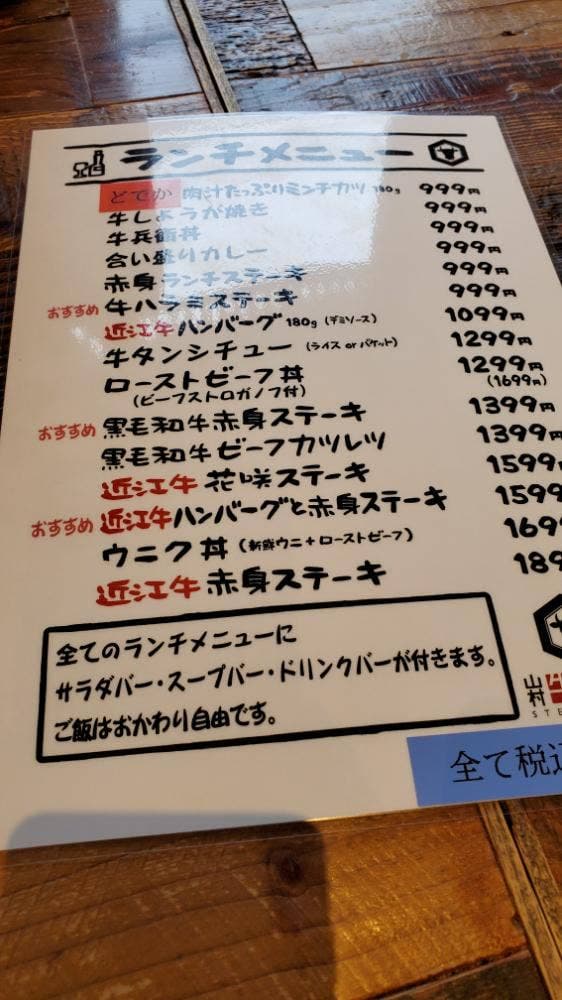 ランチメニュー
どでか 肉汁たっぷりミンチカツ 180g 999円
牛しょうが焼き 999円
牛兵衛丼 999円
合い盛りカレー 999円
赤身ランチステーキ 999円
おすすめ 牛ハラミステーキ 999円
近江牛ハンバーグ 180g (デミソース) 1099円
牛タンシチュー (ライス or バケット) 1299円
ローストビーフ丼 1299円
(ビーフストロガノフ付) (1699円)
おすすめ 黒毛和牛赤身ステーキ 1399円
黒毛和牛ビーフカツレツ 1399円
近江牛 花咲ステーキ 1599
おすすめ 近江牛ハンバーグと赤身ステーキ 1599
ウニク丼 (新鮮ウニ+ローストビーフ) 169
近江牛 赤身ステーキ 189
全てのランチメニューに
サラダバー・スープバー・ドリンクバーが付きます。
ご飯はおかわり自由です。
山村
STE
全て税込